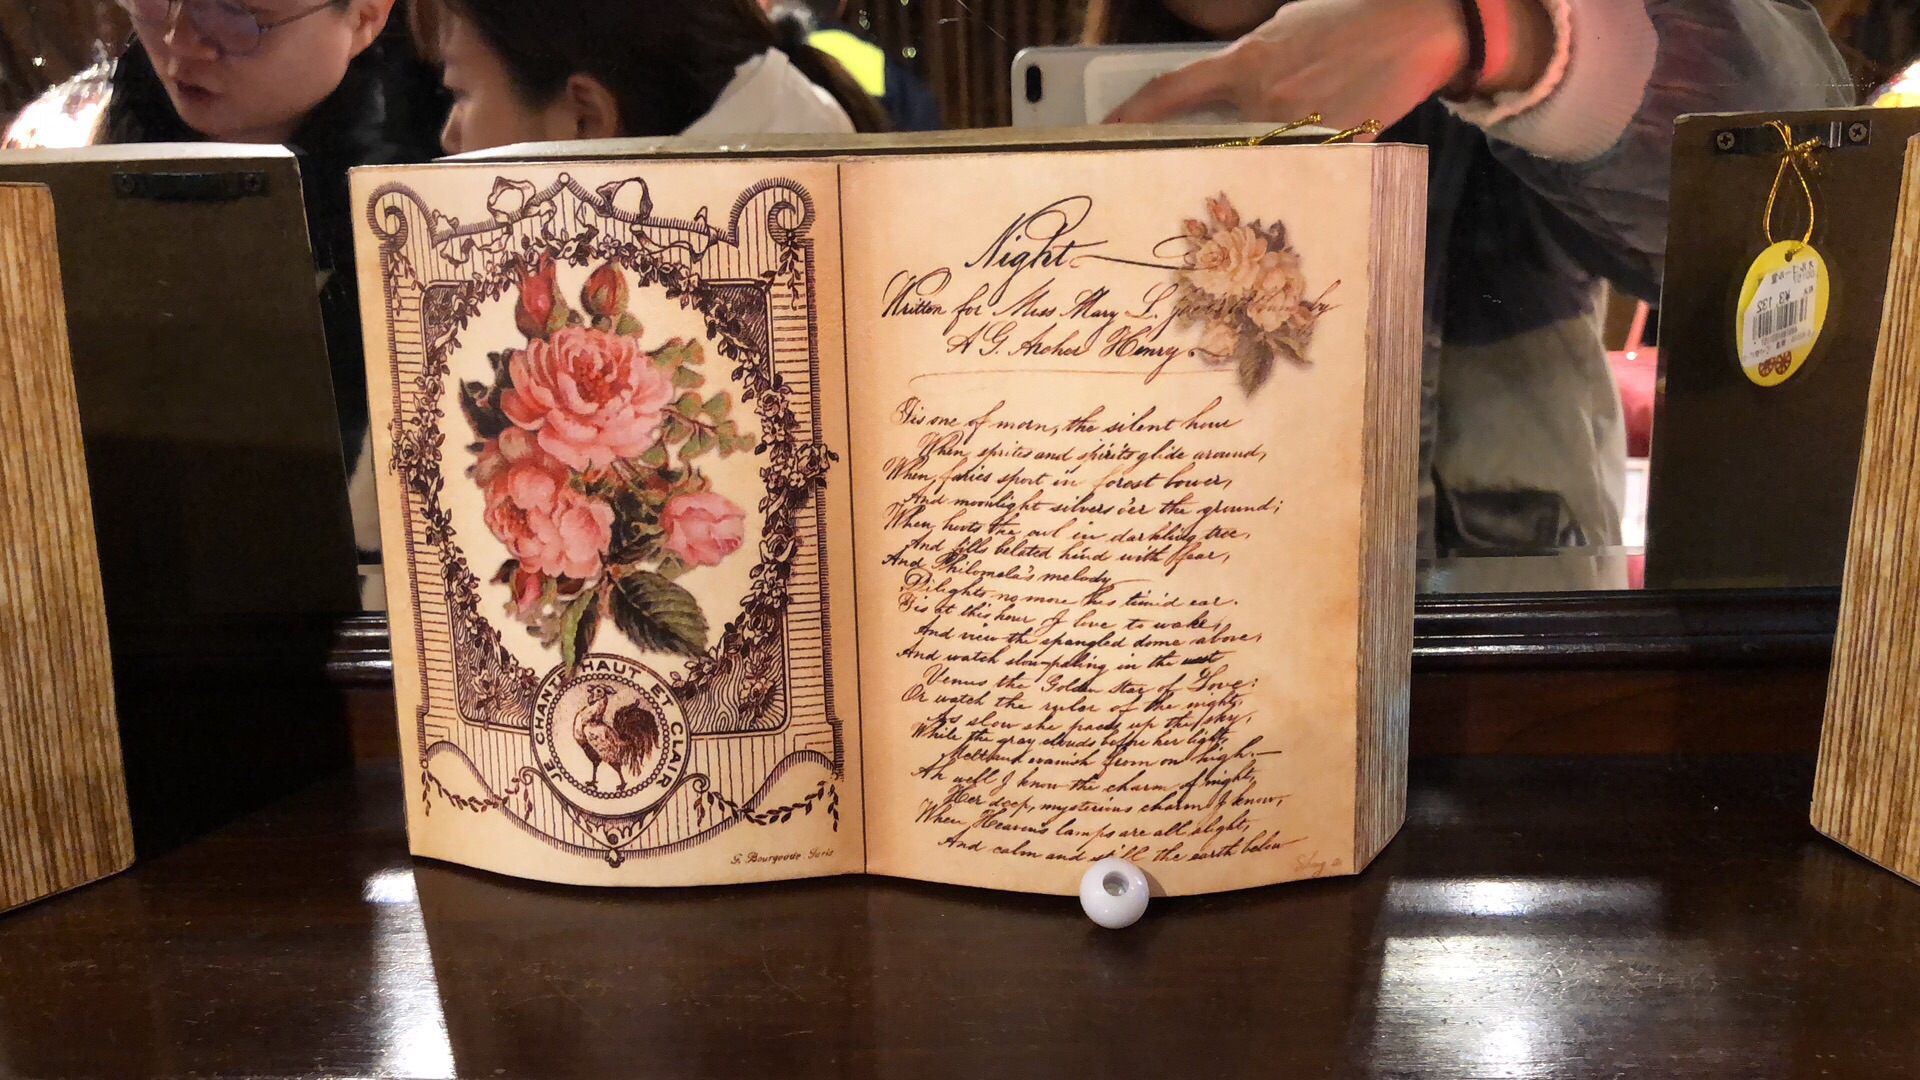 JE CHANTE HAUT ET CLAIR
G. Bourgeade Paris
Night
Written for Miss Mary L. by
A G. Archer Henry.
Tis one of morn, the silent hour
When sprites and spirits glide around,
When faries sport in forest bower,
And moonlight silvers o'er the ground;
When hoots the owl in darkling tree,
And fills belated hind with fear,
And Philomela's melody
Delights no more his timid ear.
Tis at this hour I love to wake,
And view the spangled dome above,
And watch slow-paling in the west
Venus the Golden Star of Love:
Or watch the ruler of the night,
As slow she paces up the sky,
While the gray clouds before her light
Melt and vanish from on high.—
Ah well I know the charm of night,
Her deep, mysterious charm I know,
When Heaven's lamps are all alight,
And calm and still the earth below